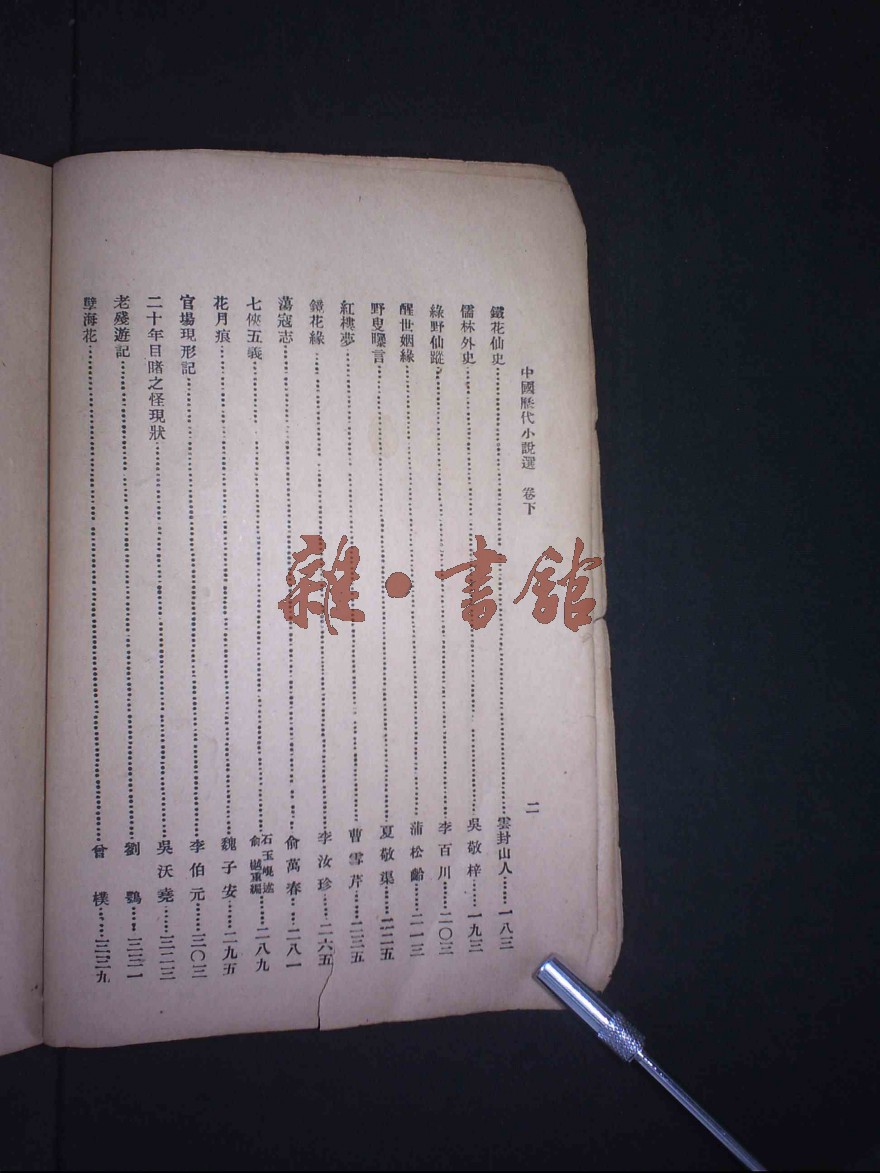 中國歷代小說選 卷下
二
鐵花仙史 雲封山人 一八三
儒林外史 吳敬梓 一九三
綠野仙蹤 李百川 二〇三
醒世姻緣 蒲松齡 二一三
野叟曝言 夏敬渠 二二五
紅樓夢 曹雪芹 二三五
鏡花緣 李汝珍 二六五
蕩寇志 俞萬春 二八一
七俠五義 石玉崐述 俞樾重編 二八九
花月痕 魏子安 二九五
官場現形記 李伯元 三〇三
二十年目睹之怪現狀 吳沃堯 三二三
老殘遊記 劉鶚 三三一
孽海花 曾樸 三三九
雜·書館